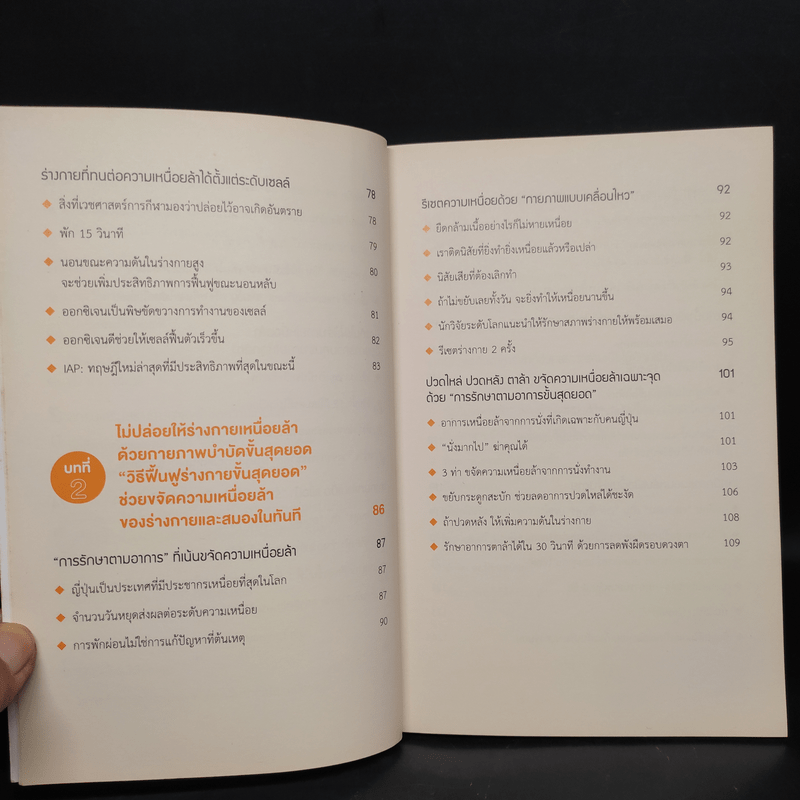 ร่างกายที่ทนต่อความเหนื่อยล้าได้ตั้งแต่ระดับเซลล์ 78
◆ สิ่งที่เวชศาสตร์การกีฬามองว่าปล่อยไว้อาจเกิดอันตราย 78
◆ พัก 15 วินาที 79
◆ นอนขณะความดันในร่างกายสูง 80
จะช่วยเพิ่มประสิทธิภาพการฟื้นฟูขณะนอนหลับ
◆ ออกซิเจนเป็นพิษขัดขวางการทำงานของเซลล์ 81
◆ ออกซิเจนดีช่วยให้เซลล์ฟื้นตัวเร็วขึ้น 82
◆ IAP: ทฤษฎีใหม่ล่าสุดที่มีประสิทธิภาพที่สุดในขณะนี้ 83
บทที่
2
ไม่ปล่อยให้ร่างกายเหนื่อยล้า
ด้วยกายภาพบำบัดขั้นสุดยอด
“วิธีฟื้นฟูร่างกายขั้นสุดยอด”
ช่วยขจัดความเหนื่อยล้า
ของร่างกายและสมองในทันที 86
“การรักษาตามอาการ” ที่เน้นขจัดความเหนื่อยล้า 87
◆ ญี่ปุ่นเป็นประเทศที่มีประชากรเหนื่อยที่สุดในโลก 87
◆ จำนวนวันหยุดส่งผลต่อระดับความเหนื่อย 87
◆ การพักผ่อนไม่ใช่การแก้ปัญหาที่ต้นเหตุ 90
รีเซตความเหนื่อยด้วย “กายภาพแบบเคลื่อนไหว” 92
◆ ยืดกล้ามเนื้ออย่างไรก็ไม่หายเหนื่อย 92
◆ เราติดนิสัยที่ยิ่งทำยิ่งเหนื่อยแล้วหรือเปล่า 92
◆ นิสัยเสียที่ต้องเลิกทำ 93
◆ ถ้าไม่ขยับเลยทั้งวัน จะยิ่งทำให้เหนื่อยนานขึ้น 94
◆ นักวิจัยระดับโลกแนะนำให้รักษาสภาพร่างกายให้พร้อมเสมอ 94
◆ รีเซตร่างกาย 2 ครั้ง 95
ปวดไหล่ ปวดหลัง ตาล้า ขจัดความเหนื่อยล้าเฉพาะจุด 101
ด้วย “การรักษาตามอาการขั้นสุดยอด”
◆ อาการเหนื่อยล้าจากการนั่งที่เกิดเฉพาะกับคนญี่ปุ่น 101
◆ “นั่งมากไป” ฆ่าคุณได้ 101
◆ 3 ท่า ขจัดความเหนื่อยล้าจากการนั่งทำงาน 103
◆ ขยับกระดูกสะบัก ช่วยลดอาการปวดไหล่ได้ชะงัด 106
◆ ถ้าปวดหลัง ให้เพิ่มความดันในร่างกาย 108
◆ รักษาอาการตาล้าได้ใน 30 วินาที ด้วยการลดพังผืดรอบดวงตา 109